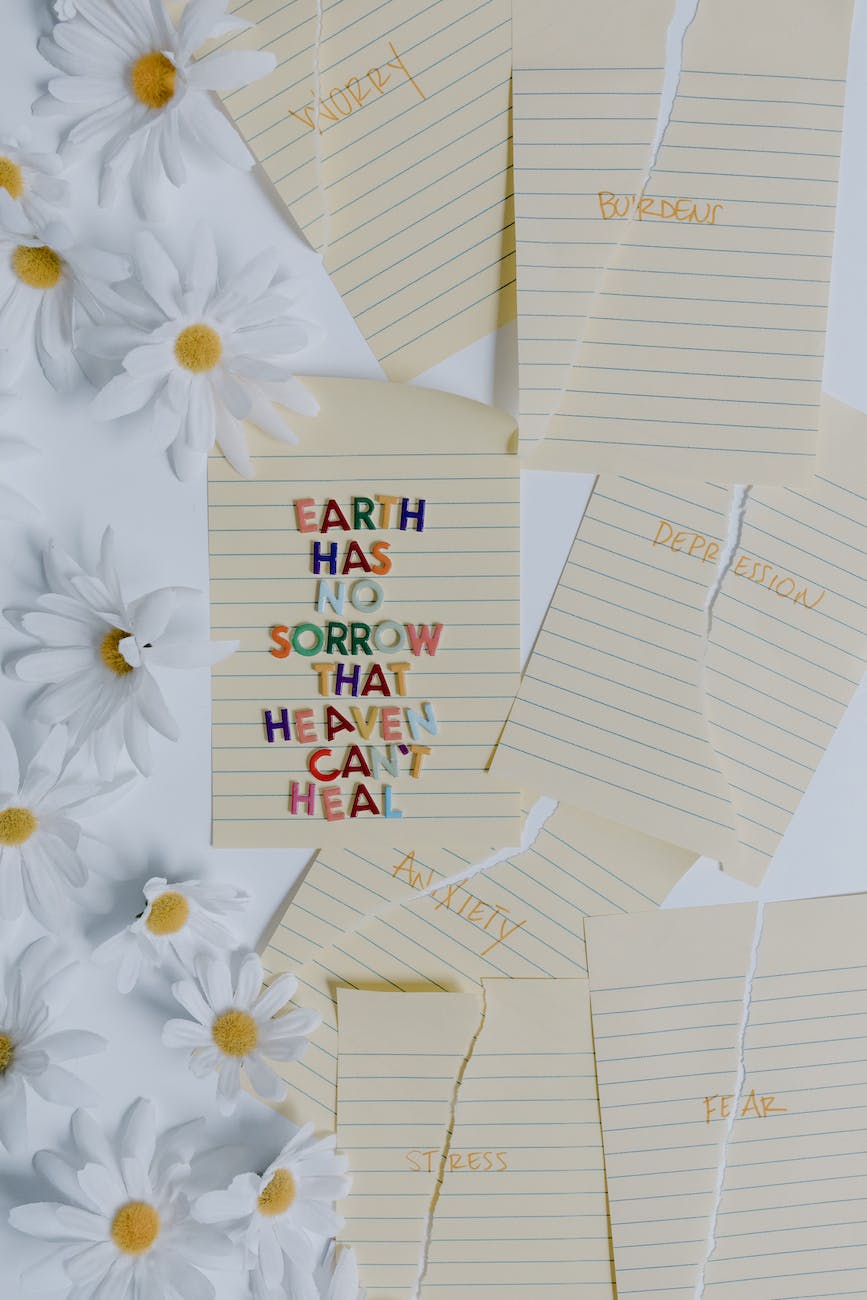 WORRY
BURDENS
EARTH
HAS
NO
SORROW
THAT
HEAVEN
CAN'T
HEAL
DEPRESSION
ANXIETY
STRESS
FEAR